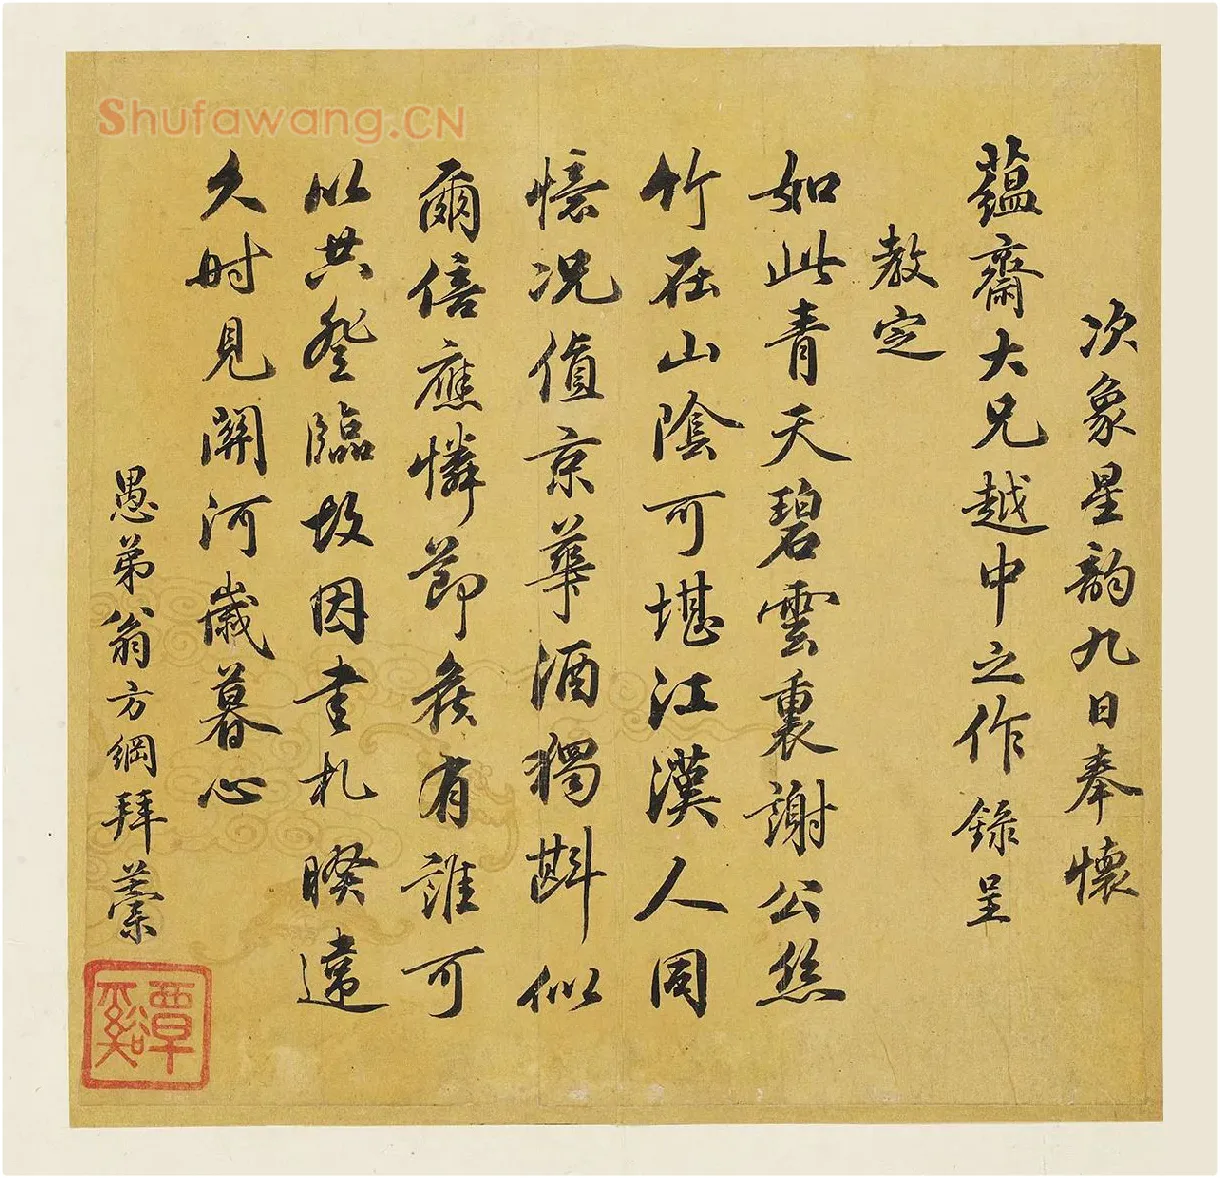 次象星韵九日奉懷
蘊齋大兄越中之作錄呈
教定
如此青天碧雲裏謝公絲
竹在山陰可堪江漢人同
憶況值京華酒獨斟似
爾倍應憐節矦有誰可
以共登臨故因書札暌違
久时見關河歲暮心
愚弟翁方綱拜藁
覃谿
Shufawang.CN